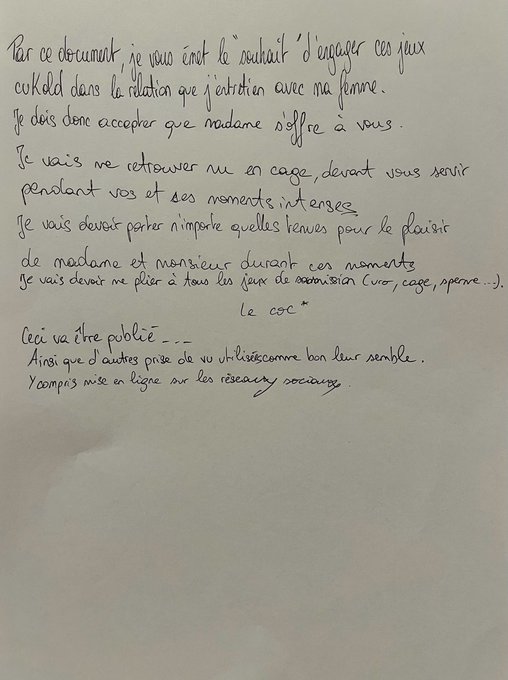 Par ce document, je vous émet le "souhait" d'engager ces jeux
cuKold dans la relation que j'entretien avec ma femme.
Je dois donc accepter que madame s'offre à vous.
Je vais me retrouver nu en cage, devant vous servir
pendant vos et ses moments intenses
Je vais devoir porter n'importe quelles tenues pour le plaisir
de madame et monsieur durant ces moments
Je vais devoir me plier à tous les jeux de (uro, cage, sperme...).
Le coc*
Ceci va être publié ---
Ainsi que d'autres prise de vu utilisés comme bon leur semble.
Y compris mise en ligne sur les réseaux sociaux.